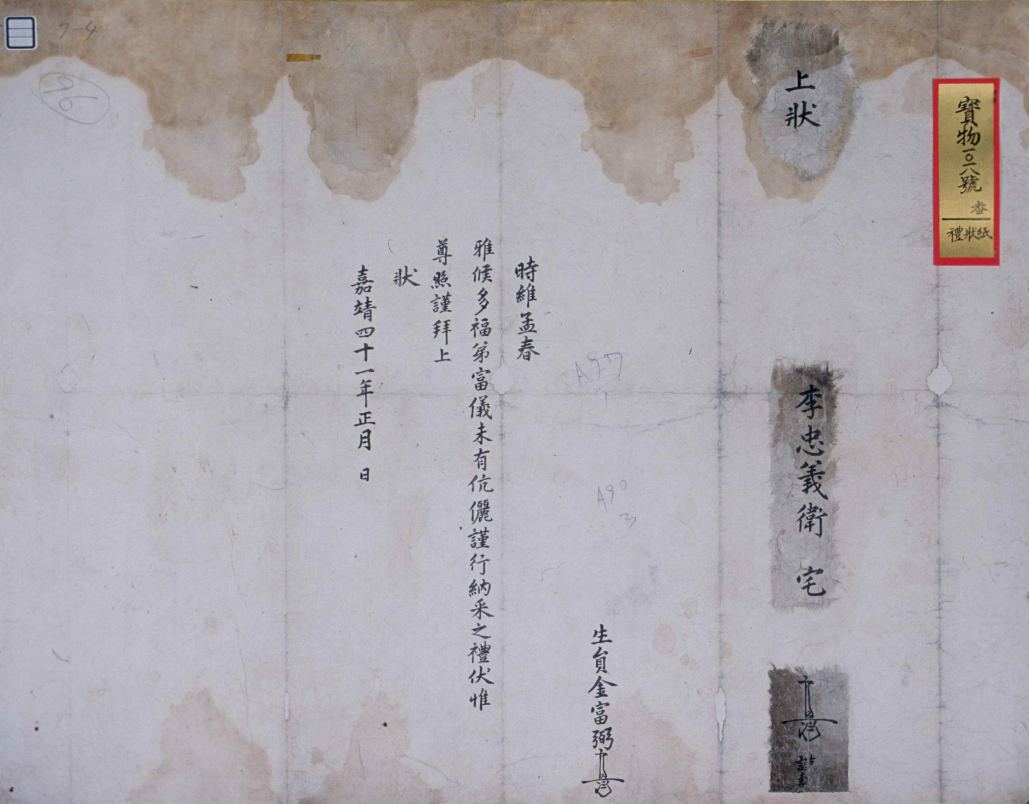 寶物一〇一八號
禮狀紙
上狀
李忠義衛 宅
謹封
生員金富弼
時維孟春
雅候多福弟富儀未有伉儷謹行納采之禮伏惟
尊照謹拜上
狀
嘉靖四十一年正月 日
A97
A90
3
7-4